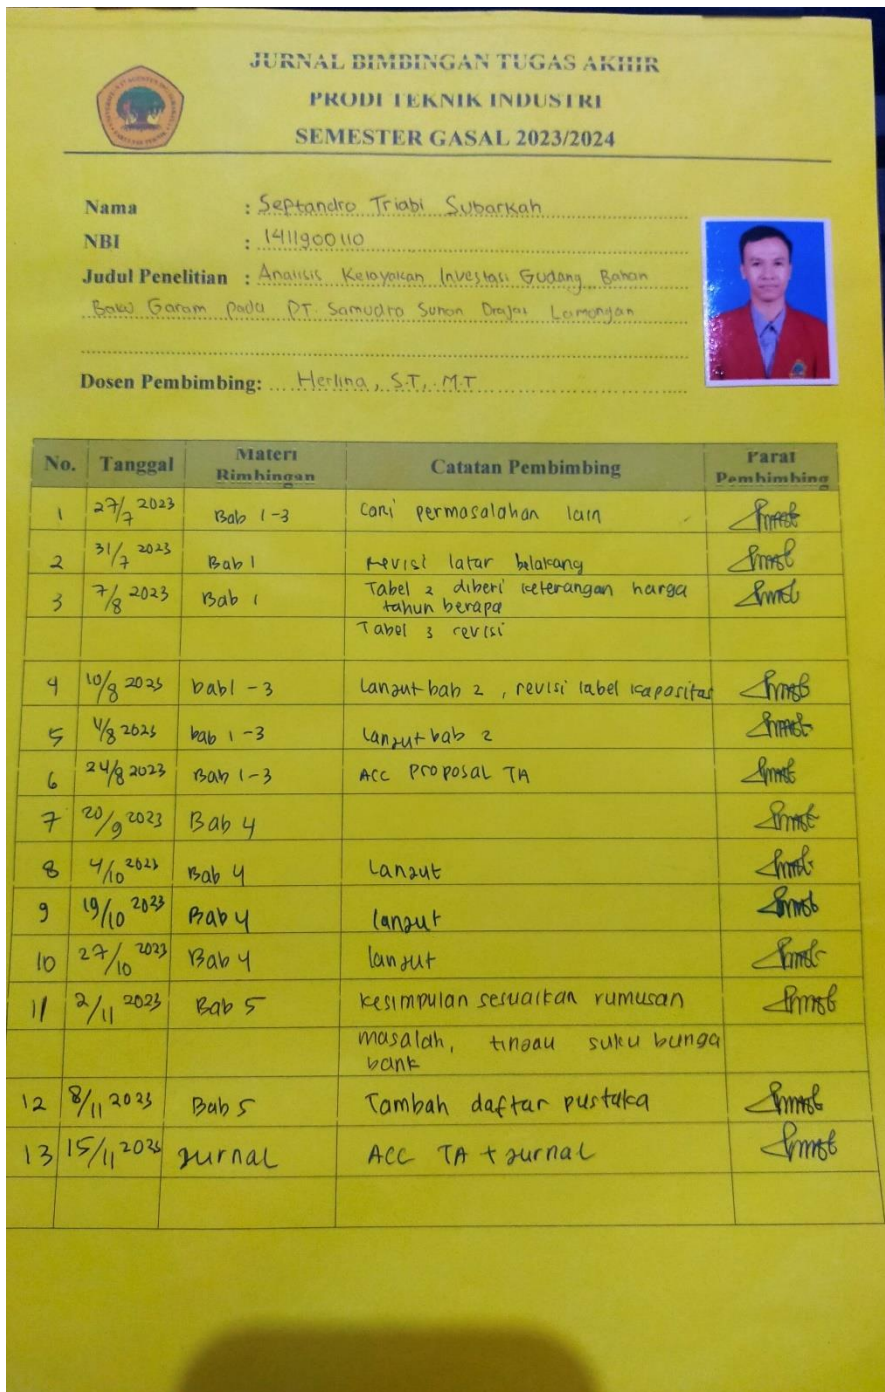 JURNAL BIMBINGAN TUGAS AKHIR
PRODI TEKNIK INDUSTRI
SEMESTER GASAL 2023/2024
Nama : Septandro Triabi Subarkah
NBI : 1411900110
Judul Penelitian : Analisis Kelayakan Investasi Gudang Bahan
Baku Garam pada PT. Samudra Sunan Drajat Lamongan
Dosen Pembimbing: Herlina, S.T,. M.T
No. Tanggal Materi Bimbingan Catatan Pembimbing Paraf Pembimbing
1 27/7 2023 Bab 1-3 Cari permasalahan lain
2 31/7 2023 Bab 1 revisi latar belakang
3 7/8 2023 Bab 1 Tabel 2 diberi keterangan harga
tahun berapa
Tabel 3 revisi
4 10/8 2023 bab 1-3 Lanjut bab 2, revisi label kapasitas
5 4/8 2023 bab 1-3 Lanjut bab 2
6 24/8 2023 Bab 1-3 ACC Proposal TA
7 20/9 2023 Bab 4
8 4/10 2023 Bab 4 Lanjut
9 19/10 2023 Bab 4 lanjut
10 27/10 2023 Bab 4 lanjut
11 2/11 2023 Bab 5 kesimpulan sesuaikan rumusan
masalah, tinjau suku bunga
bank
12 8/11 2023 Bab 5 Tambah daftar pustaka
13 15/11 2023 Jurnal ACC TA + Jurnal